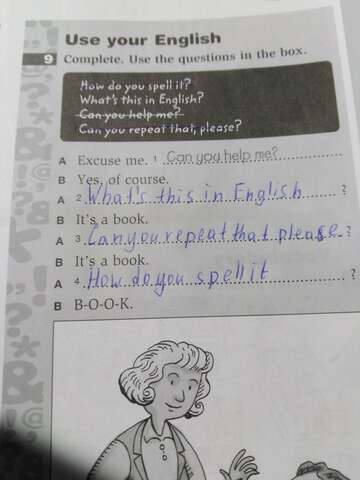 Use your English
9 Complete. Use the questions in the box.
How do you spell it?
What's this in English?
Can you help me?
Can you repeat that, please?
A Excuse me. 1 Can you help me?
B Yes, of course.
A 2 What's this in English ?
B It's a book.
A 3 Can you repeat that please. ?
B It's a book.
A 4 How do you spell it ?
B B-O-O-K.